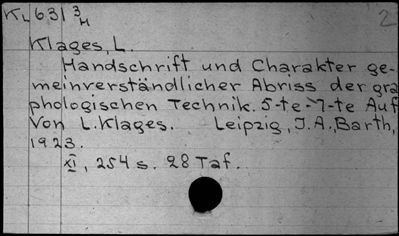 KL 631 3/H 2
Klages, L.
Handschrift und Charakter ge-
meinverständlicher Abriss der gra
phologischen Technik. 5-te-7-te Auf
Von L. Klages. Leipzig, J.A., Barth,
1923.
XI, 254 s. 28 Taf.